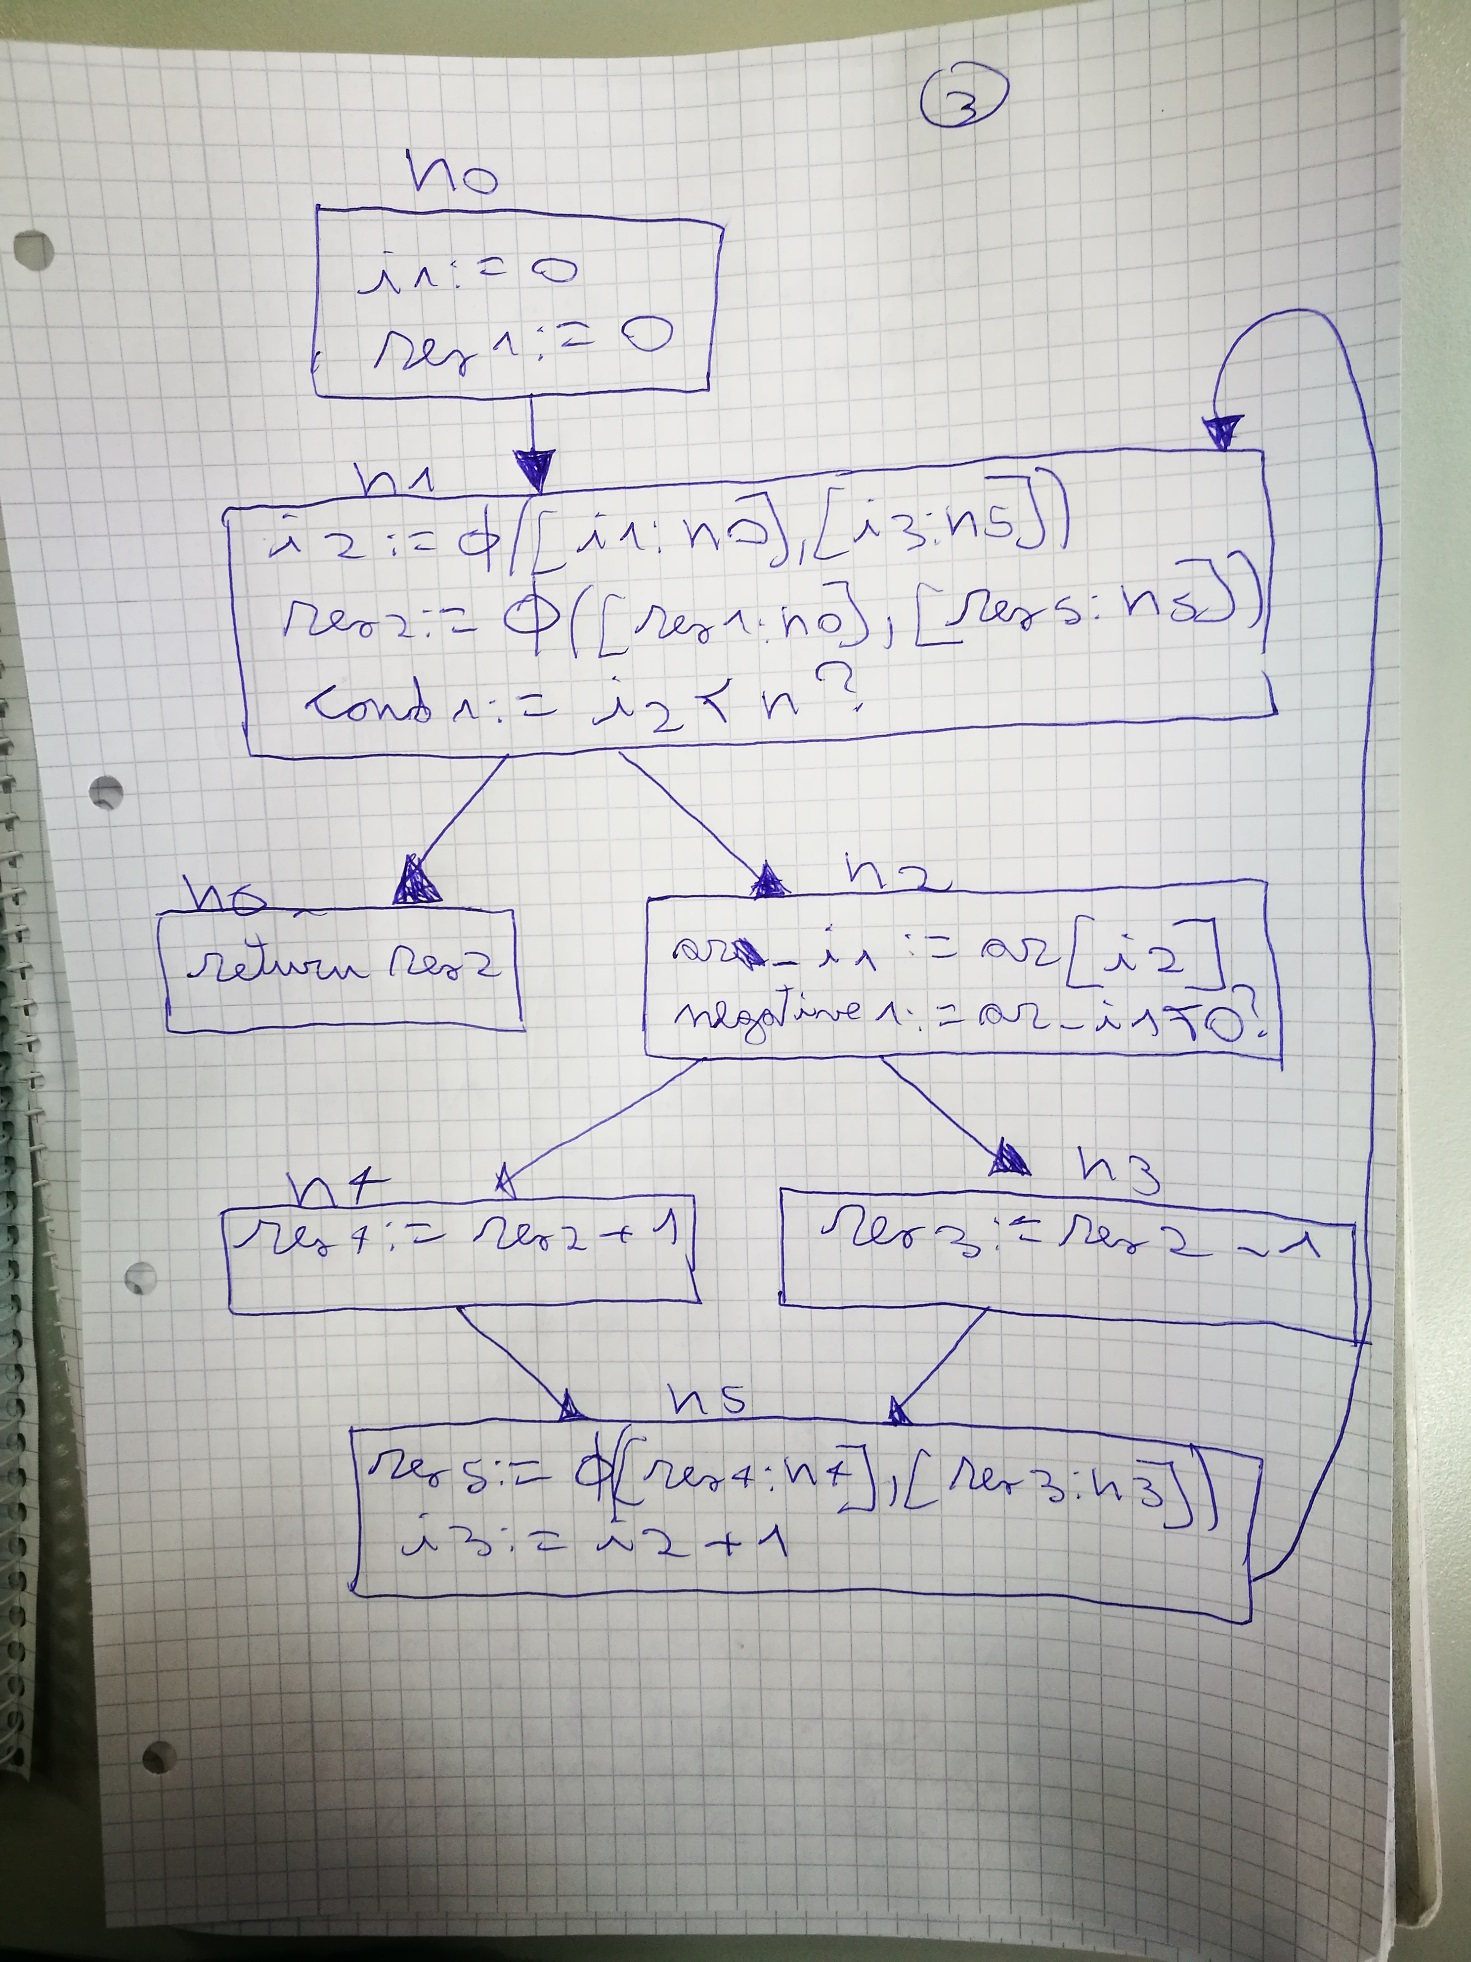 3
n0
i1:=0
res1:=0
n1
i2:=ϕ([i1:n0],[i3:n5])
res2:=ϕ([res1:n0],[res5:n5])
cond1:=i2<n?
n6
return res2
n2
ar_i1:=ar[i2]
negative1:=ar_i1<0?
n4
res4:=res2+1
n3
res3:=res2-1
n5
res5:=ϕ([res4:n4],[res3:n3])
i3:=i2+1